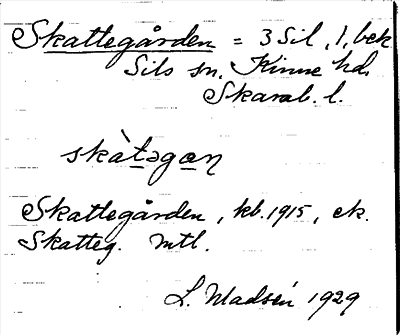 Skattegården = 3 Sil, 1, bek.
Sils sn. Kinne hd.
Skarab. l.
skàtəgan
Skattegården, kb. 1915, ek.
Skatteg. mtl.
L. Madsén 1929